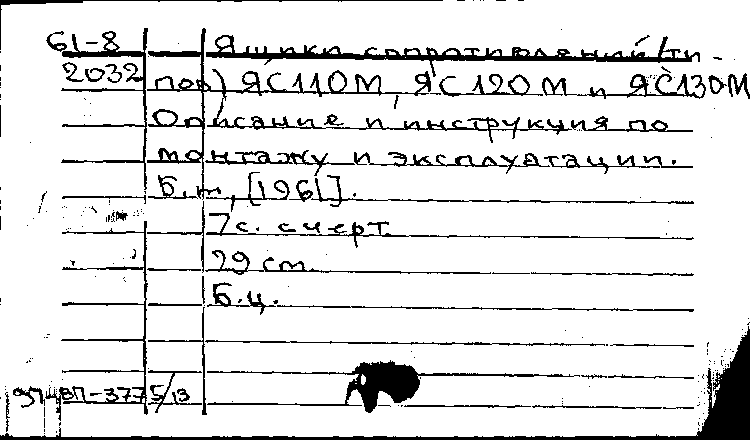 61-8 Ящики сопротивлений (ти-
2032 пов) ЯС110М, ЯС120М и ЯС130М
Описание и инструкция по
монтажу и эксплуатации.
Б.м, [1961].
7с. с черт.
29 см.
Б.ц.
97487-3775/13